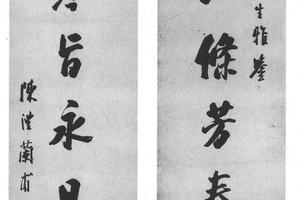 生雅鑒
條芳春
旨永日
陳澧蘭甫